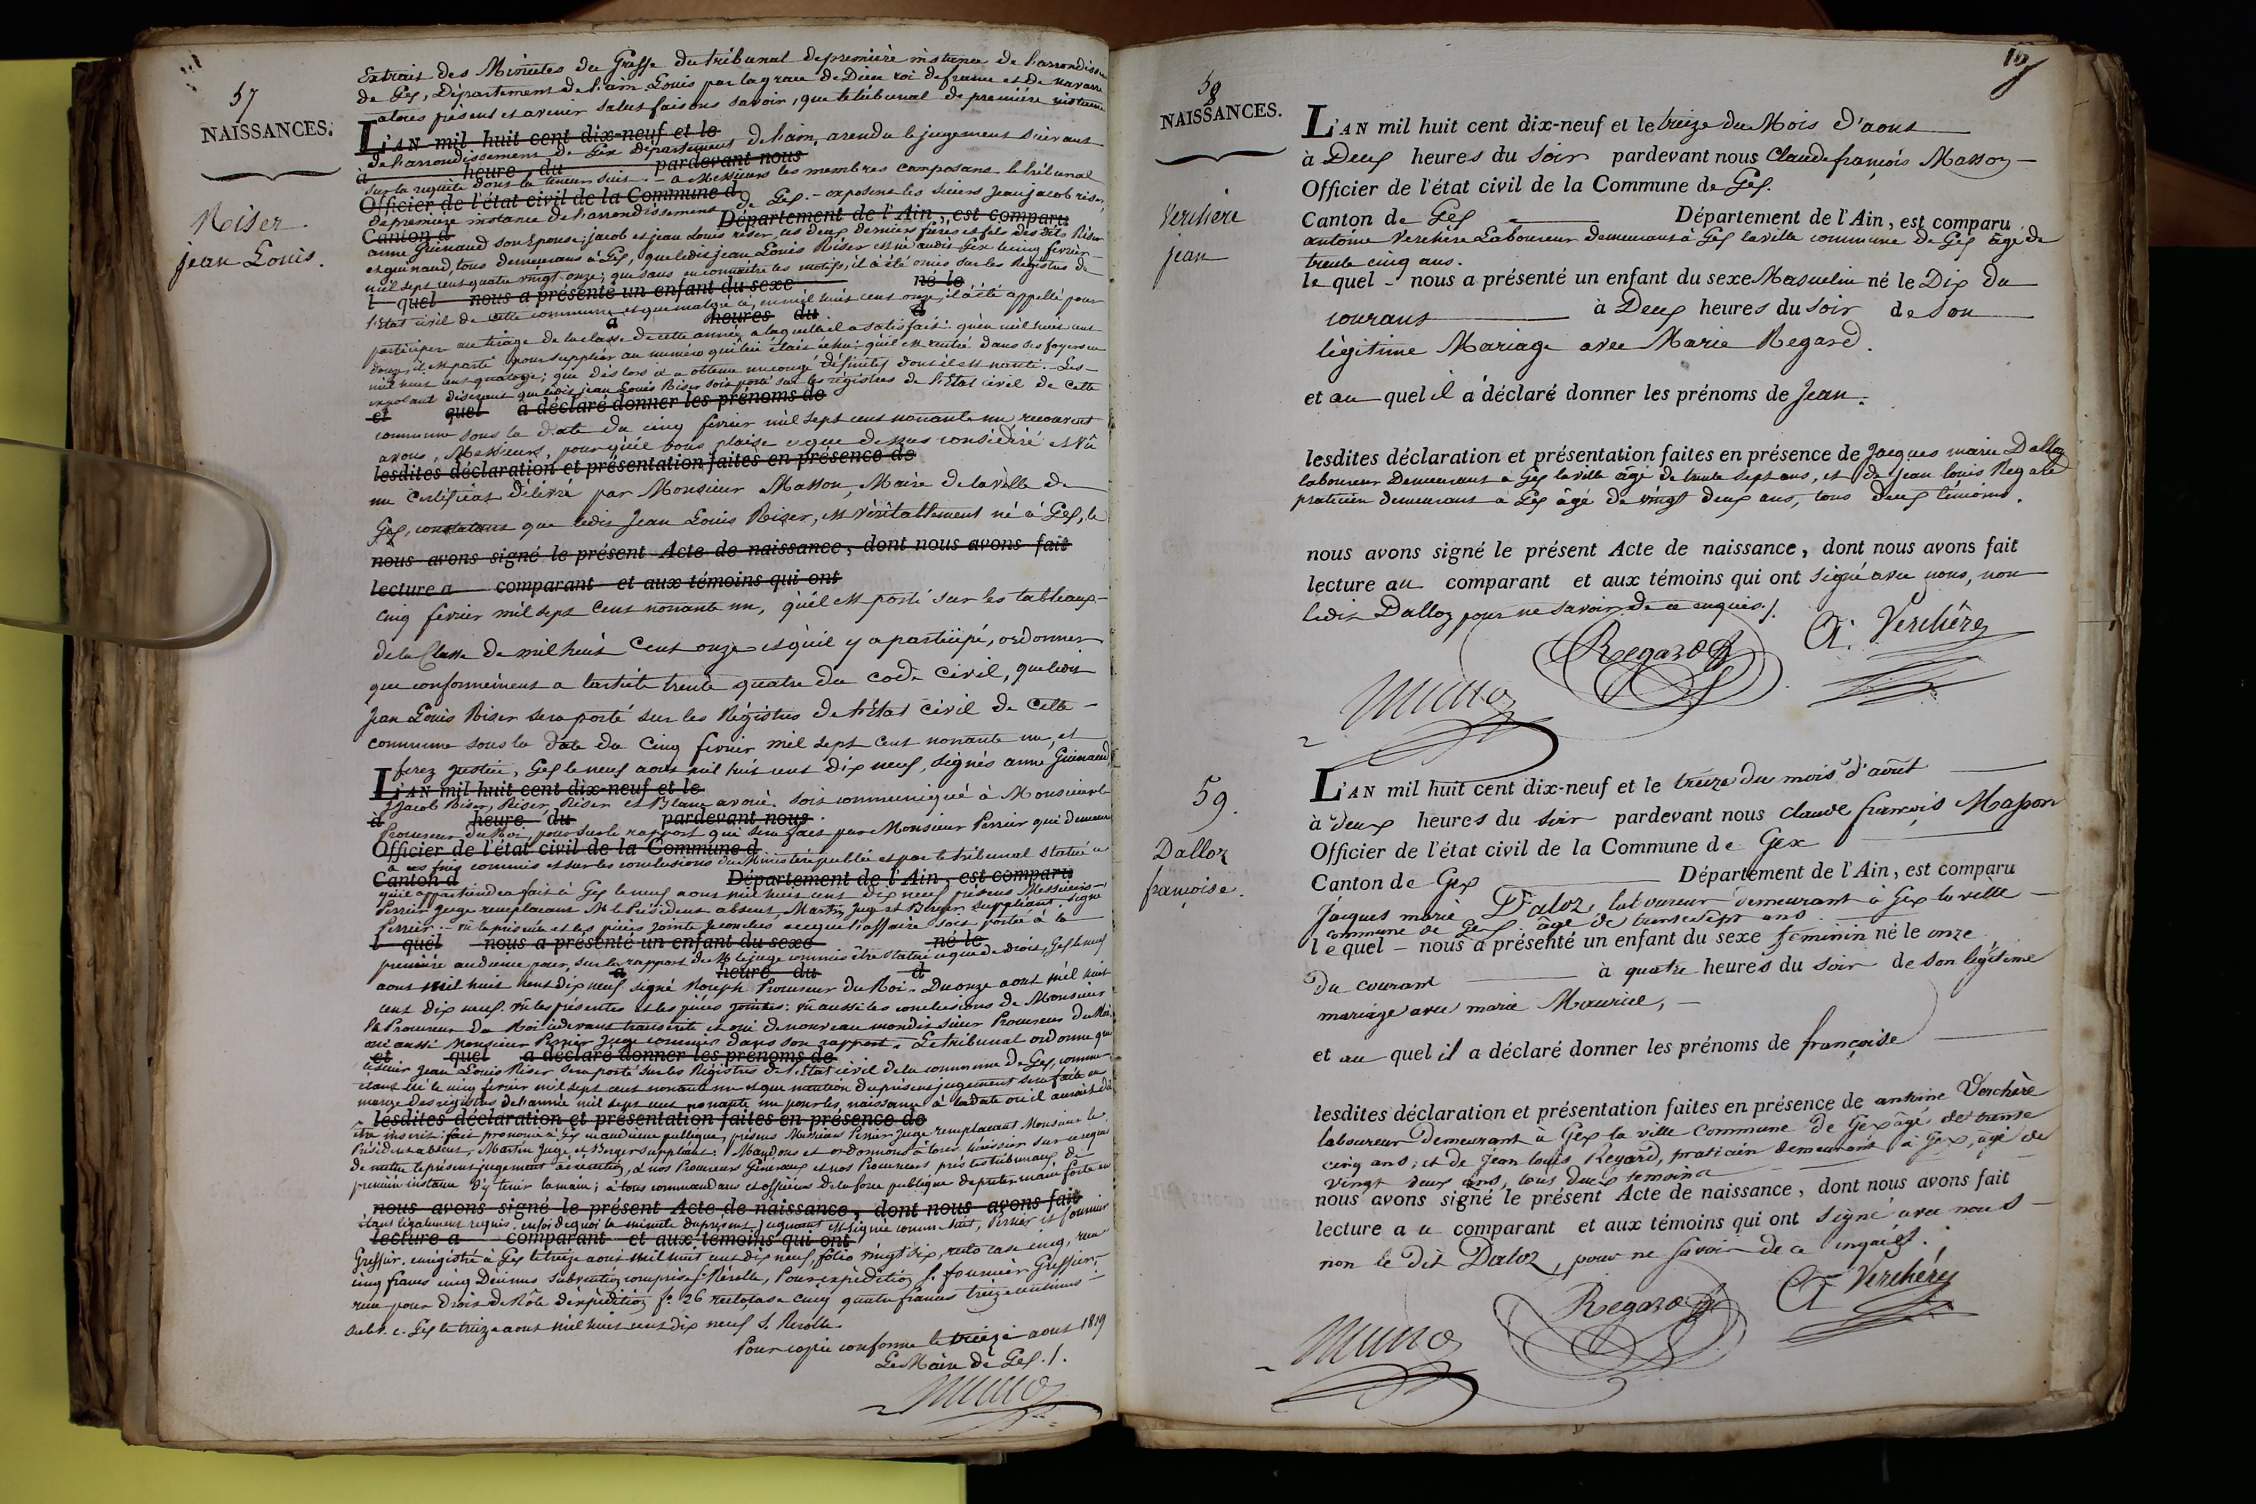 57
NAISSANCES.
Riser
jean Louis.
Extrait des Minutes du Greffe du tribunal de première instance de l'arrondissem
de Gex, Département de l'ain. Louis par la grace de Dieu roi de france et de navarre
a tous présens et avenir salut faisons savoir, que le tribunal de première instance
L'AN mil huit cent dix-neuf et le
de l'arrondissement de Gex département de l'ain, a rendu le jugement suivant
à heure du pardevant nous
sur la requête dont la teneur suit. - a Messieurs les membres composans le tribunal
Officier de l'état civil de la Commune d
de première instance de l'arrondissement de Gex. - exposent les sieurs jean jacob riser,
Canton d Département de l'Ain, est comparu
anne Guinand son Epouse, jacob et jean Louis riser, ces deux derniers frères et fils des dits Riser
et guinand, tous demeurans à Gex, que ledit jean Louis Riser est né audit Gex le cinq fevrier
mil sept cent quatre vingt onze; que sans en connaitre les motifs, il a été omis sur les Registres de
l quel nous a présenté un enfant du sexe né le
l'Etat civil de cette commune et que malgré ce, en mil huit cent onze, il a été appellé pour
à heures du d
participer au tirage de la classe de cette année, a laquelle il a satisfait. qu'en mil huit cent
douze, il est parti pour suppléer au numéro qui lui était échu; qu'il est rentré dans ses foyers en
mil huit cent quatorze; que dès lors il a obtenu un congé définitif dont il est nanti. - Les
exposant désirent que ledit jean Louis Riser soit porté sur les régistres de l'Etat civil de cette
et quel a déclaré donner les prénoms de
commune sous la date du cinq fevrier mil sept cent nonante un, recourent
a vous, Messieurs, pour qu'il vous plaise ce que dessus considéré et vû
lesdites déclaration et présentation faites en présence de
un Certificat délivré par Monsieur Masson, Maire de la ville de
Gex, constatant que ledit Jean Louis Riser, est véritablement né à Gex, le
nous avons signé le présent Acte de naissance, dont nous avons fait
lecture a comparant et aux témoins qui ont
cinq fevrier mil sept cent nonante un, qu'il est porté sur les tableaux
de la Classe de mil huit cent onze et qu'il y a participé, ordonner
que conformément a l'article trente quatre du code civil, que ledit
Jean Louis Riser sera porté sur les Régistres de l'Etat civil de Cette
commune sous la date du Cinq fevrier mil sept cent nonante un, et
ferez justice, Gex le neuf aout mil huit cent dix neuf, signés anne Guinand
L'AN mil huit cent dix-neuf et le
Jacob Riser, Riser Riser et Blanc avoué. Soit communiqué à Monsieur le
à heure du pardevant nous
Procureur du Roi, pour sur le rapport qui sera fait par Monsieur Perrier qui demeure
Officier de l'état civil de la Commune d
a ces fins commis et sur les conclusions du Ministère public et par le tribunal statué ce
Canton d Département de l'Ain, est comparu
qu'il appartiendra fait à Gex le neuf aout mil huit cent dix neuf présens Messieurs
Perrier juge remplacant Mr le Président absent, Martin juge et Berger suppléant. signé
Perrier. - vu la présente et les pièces jointe je conclus a ce que l'affaire soit portée à la
l quel nous a présenté un enfant du sexe né le
première audience pour, sur le rapport de Mr le juge commis être statué ce que de droit, Gex le neuf
à heure du d
aout mil huit cent dix neuf signé Roseph Procureur du Roi. Du onze aout mil huit
cent dix neuf. vû les présentes et les pièces jointes: vû aussi les conclusions de Monsieur
le Procureur du Roi cidevant transcrite et oui de nouveau mondit sieur Procureur du Roi,
oui aussi Monsieur Perrier juge commis dans son rapport. Le tribunal ordonne que
et quel a déclaré donner les prénoms de
le sieur jean Louis Riser sera porté sur les Régistres de l'Etat civil de la commune de Gex, comme
étant né le cinq fevrier mil sept cent nonante un et que mention du présent jugement sera faite en
marge des régistres de l'année mil sept cent nonante un pour les naissance à la date où il aurait dû
lesdites déclaration et présentation faites en présence de
être inscrit: fait prononcé à Gex en audience publique, présens Messieurs Perrier Juge remplacant Monsieur le
Président absent, Martin Juge, et Berger suppléant. Mandons et ordonnons à tous huissiers sur ce requis
de mettre le présent jugement à exécution, à nos Procureurs Généraux et nos Procureurs près les tribunaux de
première instance d'y tenir la main; à tous commandans et officiers de la force publique de preter main forte en
nous avons signé le présent Acte de naissance, dont nous avons fait
étant légalement requis. en foi de quoi la minute du présent jugement est signée comme suit, Perrier et fournier
lecture a comparant et aux témoins qui ont
Greffier. enrégistré à Gex le treize aout mil huit cent dix neuf, folio vingt six, recto case cinq, recu
cinq francs cinq Décimes subvention comprise S. Rérolle, Pour expédition S. fournier Greffier.
recu pour Droit de Rôle d'expédition fo 26 recto case cinq quatre francs treize centimes
Subv. c. Gex le treize aout mil huit cent dix neuf S. Rerolle.
Pour copie conforme le treize aout 1819
Le Maire de Gex. /.
58
NAISSANCES.
Verchere
jean
L'AN mil huit cent dix-neuf et le treize du Mois d'aout
à Deux heures du soir pardevant nous Claude françois Masson
Officier de l'état civil de la Commune de Gex.
Canton de Gex Département de l'Ain, est comparu
antoine Verchère Laboureur demeurant à Gex la ville commune de Gex âgé de
trente cinq ans.
le quel nous a présenté un enfant du sexe Masculin né le Dix du
courant à Deux heures du soir de son
légitime Mariage avec Marie Regard.
et au quel il a déclaré donner les prénoms de Jean.
lesdites déclaration et présentation faites en présence de Jacques marie Dalloz
laboureur Demeurant à Gex la ville âgé de trente sept ans, et de Jean louis Regard
praticien demeurant à Gex âgé de vingt deux ans, tous deux témoins.
nous avons signé le présent Acte de naissance, dont nous avons fait
lecture au comparant et aux témoins qui ont signé avec nous, non
ledit Dalloz pour ne savoir de ce enquis. /.
Regard A. Verchère
59.
Dalloz
françoise.
L'AN mil huit cent dix-neuf et le treize du mois d'août
à deux heures du soir pardevant nous claude françois Masson
Officier de l'état civil de la Commune de Gex
Canton de Gex Département de l'Ain, est comparu
Jacques marie Daloz, laboureur demeurant à Gex la ville
commune de Gex, âgé de trente sept ans
le quel nous a présenté un enfant du sexe feminin né le onze
du courant à quatre heures du soir de son légitime
mariage avec marie Mauricel,
et au quel il a déclaré donner les prénoms de françoise
lesdites déclaration et présentation faites en présence de antoine Verchère
laboureur demeurant à Gex la ville commune de Gex âgé de trente
cinq ans; et de jean louis Regard, praticien demeurant à Gex, agé de
vingt deux ans, tous deux temoins
nous avons signé le présent Acte de naissance, dont nous avons fait
lecture au comparant et aux témoins qui ont signé avec nous
non le dit Daloz, pour ne savoir de ce enquis.
Regard A Verchère